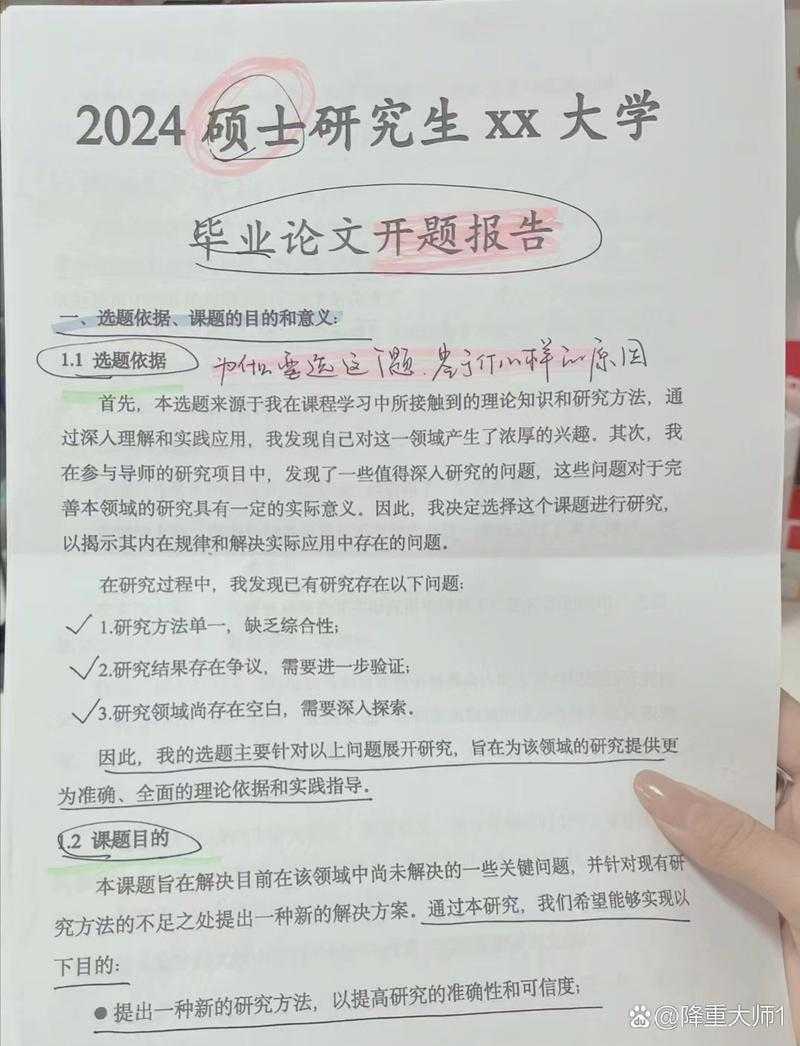 2024 硕士研究生 xx 大学
毕业论文开题报告
一、选题依据、课题的目的和意义：
1.1 选题依据
为什么要选这个题、基于什么样的原因
首先，本选题来源于我在课程学习中所接触到的理论知识和研究方法，通
过深入理解和实践应用，我发现自己对这一领域产生了浓厚的兴趣。其次，我
在参与导师的研究项目中，发现了一些值得深入研究的问题，这些问题对于完
善本领域的研究具有一定的实际意义。因此，我决定选择这个课题进行研究，
以揭示其内在规律和解决实际应用中存在的问题。
在研究过程中，我发现已有研究存在以下问题：
1.研究方法单一，缺乏综合性；
2.研究结果存在争议，需要进一步验证；
3.研究领域尚存在空白，需要深入探索。
因此，我的选题主要针对以上问题展开研究，旨在为该领域的研究提供更
为准确、全面的理论依据和实践指导。
1.2 课题目的
本课题旨在解决目前在该领域中尚未解决的一些关键问题，并针对现有研
究方法的不足之处提出一种新的解决方案。通过本研究，我们希望能够实现以
下目的：
● 提出一种新的研究方法，以提高研究的准确性和可信度；
@降重大师1